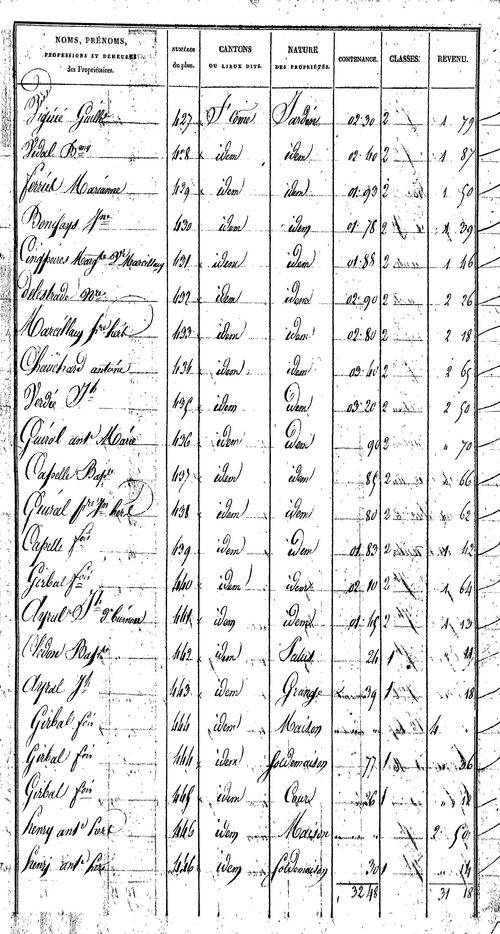 NOMS, PRÉNOMS, PROFESSIONS ET DEMEURES des Propriétaires. NUMÉROS du plan. CANTONS OU LIEUX DITS. NATURE DES PROPRIÉTÉS. CONTENANCE. CLASSES. REVENU.
427 St Côme Jardin 02.30 2 1 79
Vidal 428 idem idem 02.40 2 1 87
Marianne 429 idem idem 01.93 2 1 50
Bonifays 430 idem idem 01.78 2 1 39
431 idem idem 01.88 2 1 46
delestrade 432 idem idem 02.90 2 2 26
433 idem idem 02.80 2 2 18
Chauchard antoine 434 idem idem 03.40 2 2 65
Verdié Jh 435 idem idem 03.20 2 2 50
ant Marie 436 idem idem 90 2 " 70
Capelle Bapte 437 idem idem 85 2 66
438 idem idem 80 2 62
Capelle fois 439 idem idem 01.83 2
Girbal fois 440 idem idem 02.10 2 1 64
Ayral Jh 441 idem idem 01.45 2 1 13
Bapte 442 idem Patus 24 1
Ayral Jh 443 idem Grange 39 1 18
Girbal fois 444 idem Maison 4 "
Girbal fois 444 idem Soldemaison 77 1 36
Girbal fois 445 idem Cour 26 1 12
henry ant 446 idem Maison 2 50
henry ant 446 idem Soldemaison 30 1 14
32 48 31 18